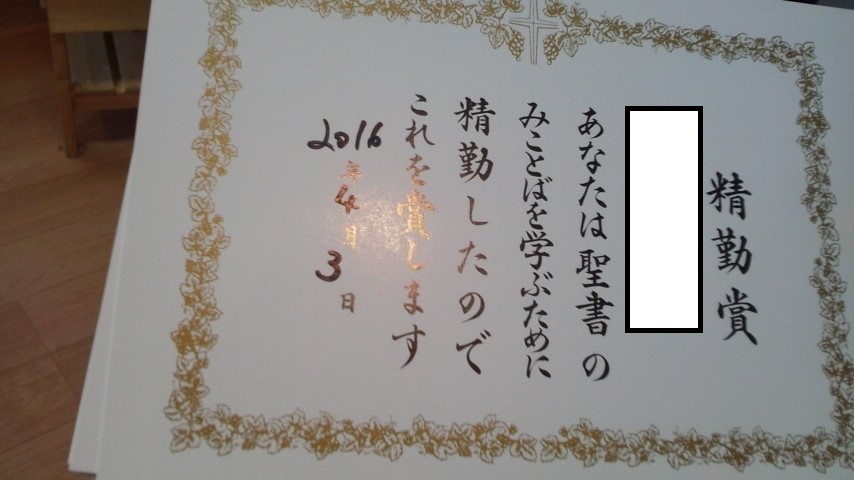 精勤賞
あなたは聖書の
みことばを学ぶために
精勤したので
これを賞します
2016年4月3日